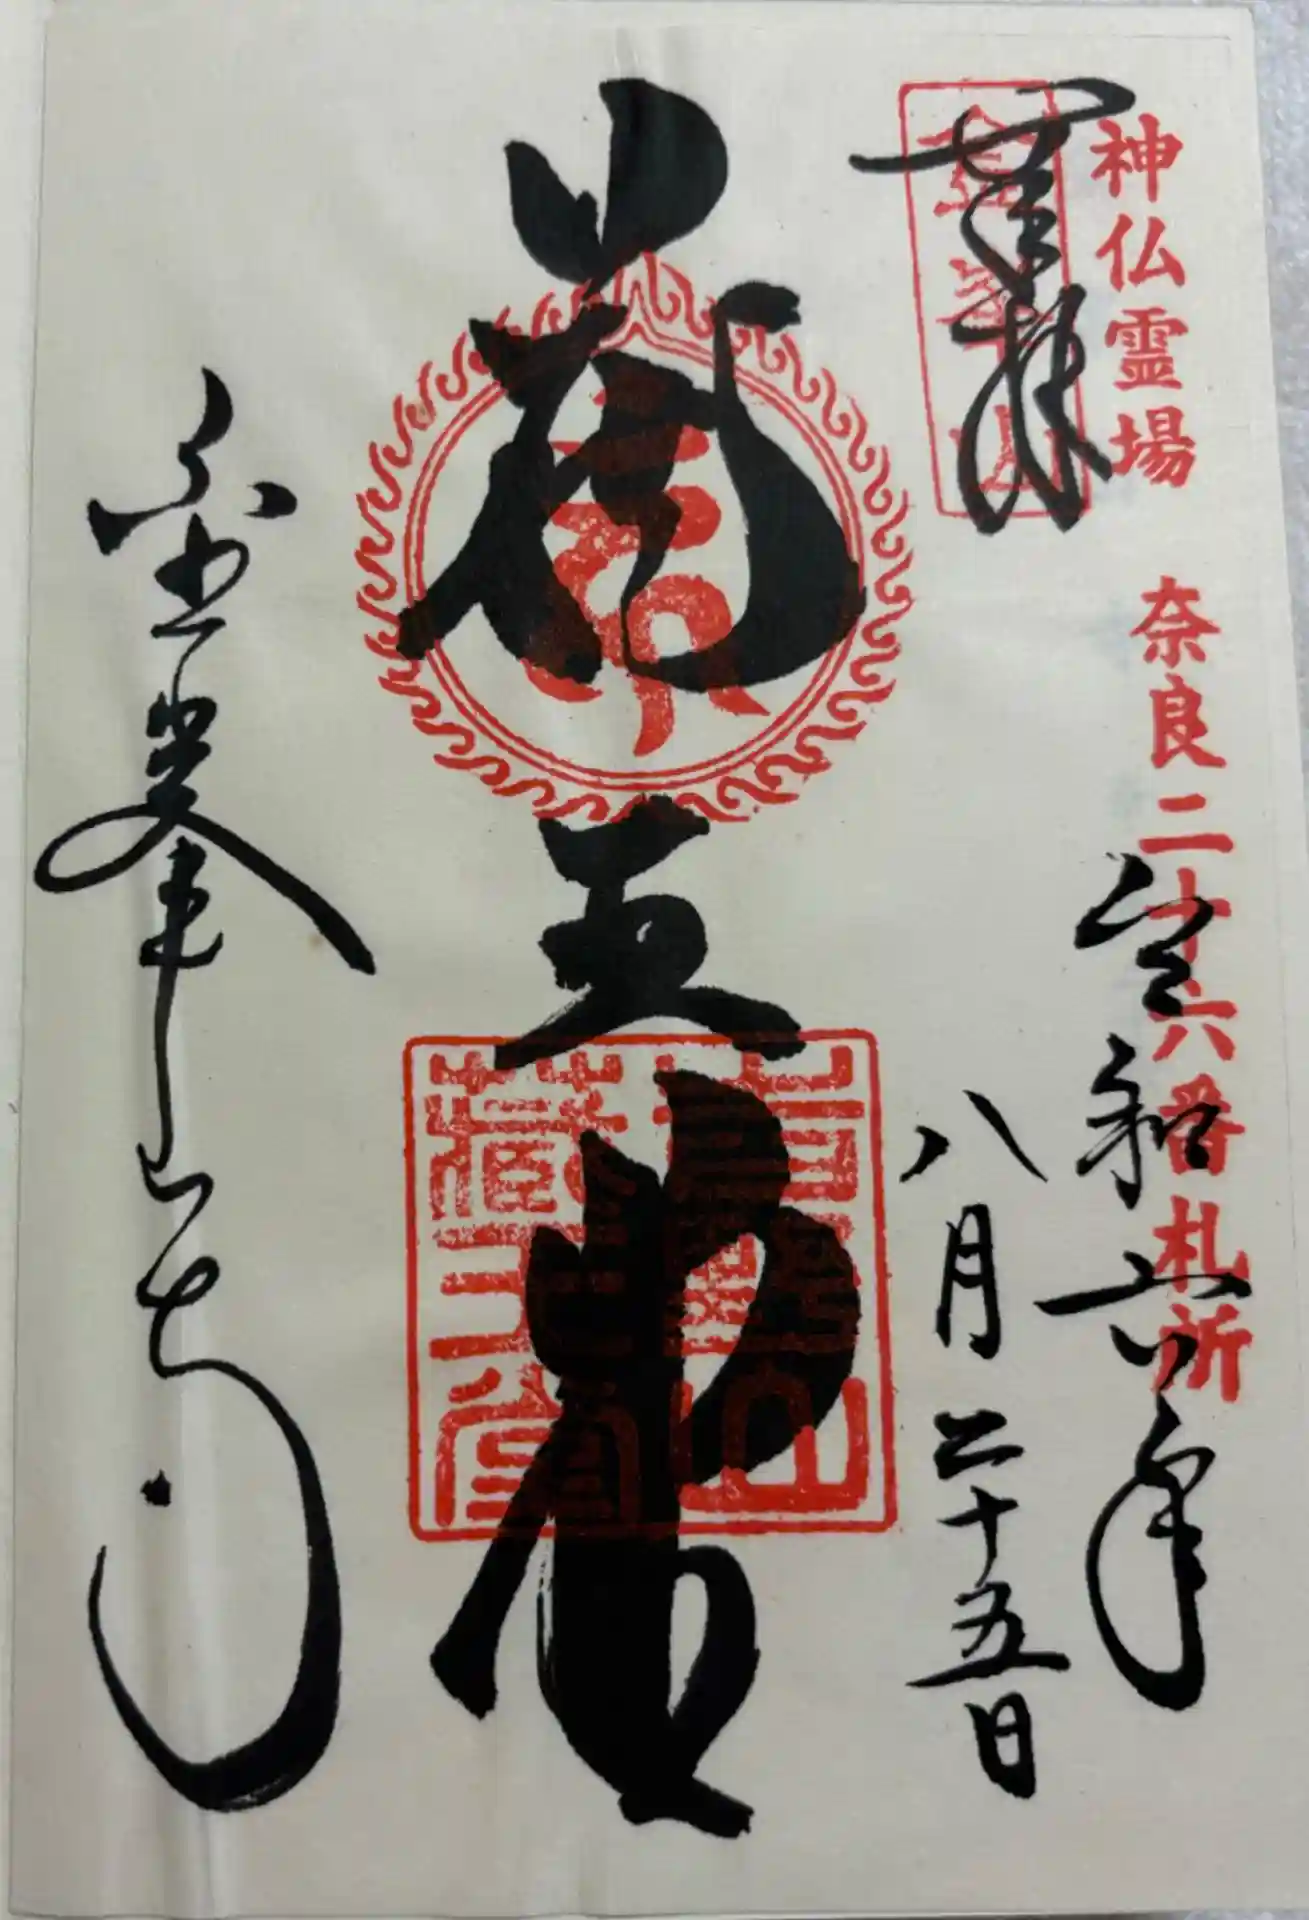 神仏霊場 奈良二十六番札所
令和六年
八月二十五日
奉拝
金峯山
蔵王堂
吉野山
蔵王堂
金峯山寺